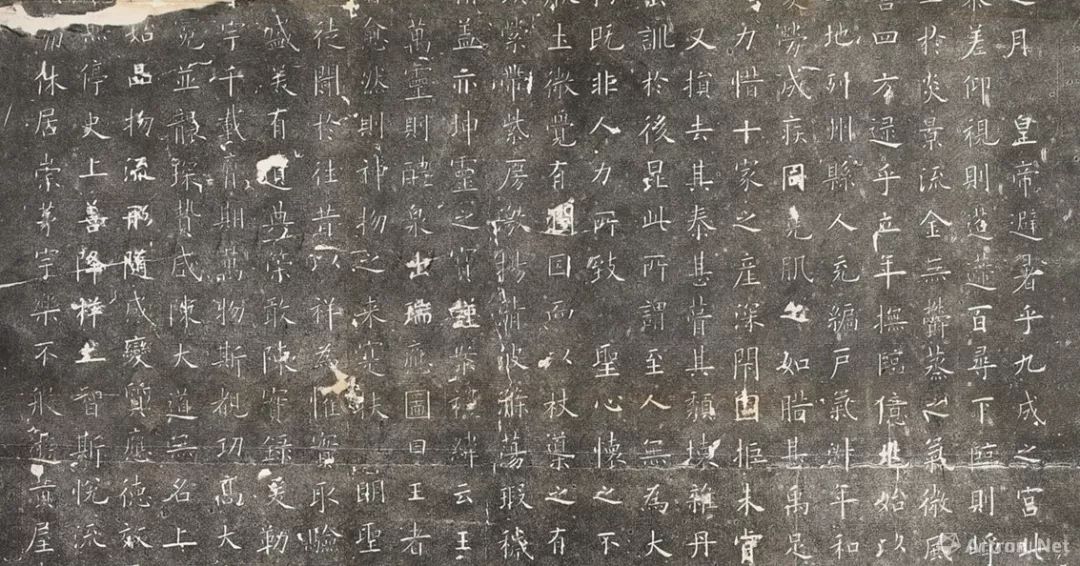 之月 皇帝避暑乎九成之宮此
差仰視則迢遰百尋下臨則崢
於炎景流金無鬱蒸之氣微風
言四方逮乎立年撫臨億兆始以
地列州縣人充編戶氣淑年和
勞成疾同堯肌之如腊甚禹足
力惜十家之產深閉固拒未肯
又損去其泰甚葺其頹壞雜丹
訓於後昆此所謂至人無為大
既非人力所致 聖心懷之不
土微覺有潤因而以杖導之有
縈帶紫房激揚清波滌蕩瑕穢
蓋亦坤靈之寶謹案禮緯云王
萬靈則醴泉出瑞應圖曰王者
愈然則神物之來寔扶明聖
徒聞於往昔以祥為懼實取驗
盛美有遺典策敢陳實錄爰勒
宇千載膺期萬物斯覩功高大
冕並襲琛贄咸陳大道無名上
始品物流形隨感變質應德效
無停史上善降祥上智斯悅流
勿休居崇茅宇樂不般遊黃屋
Artron.Net